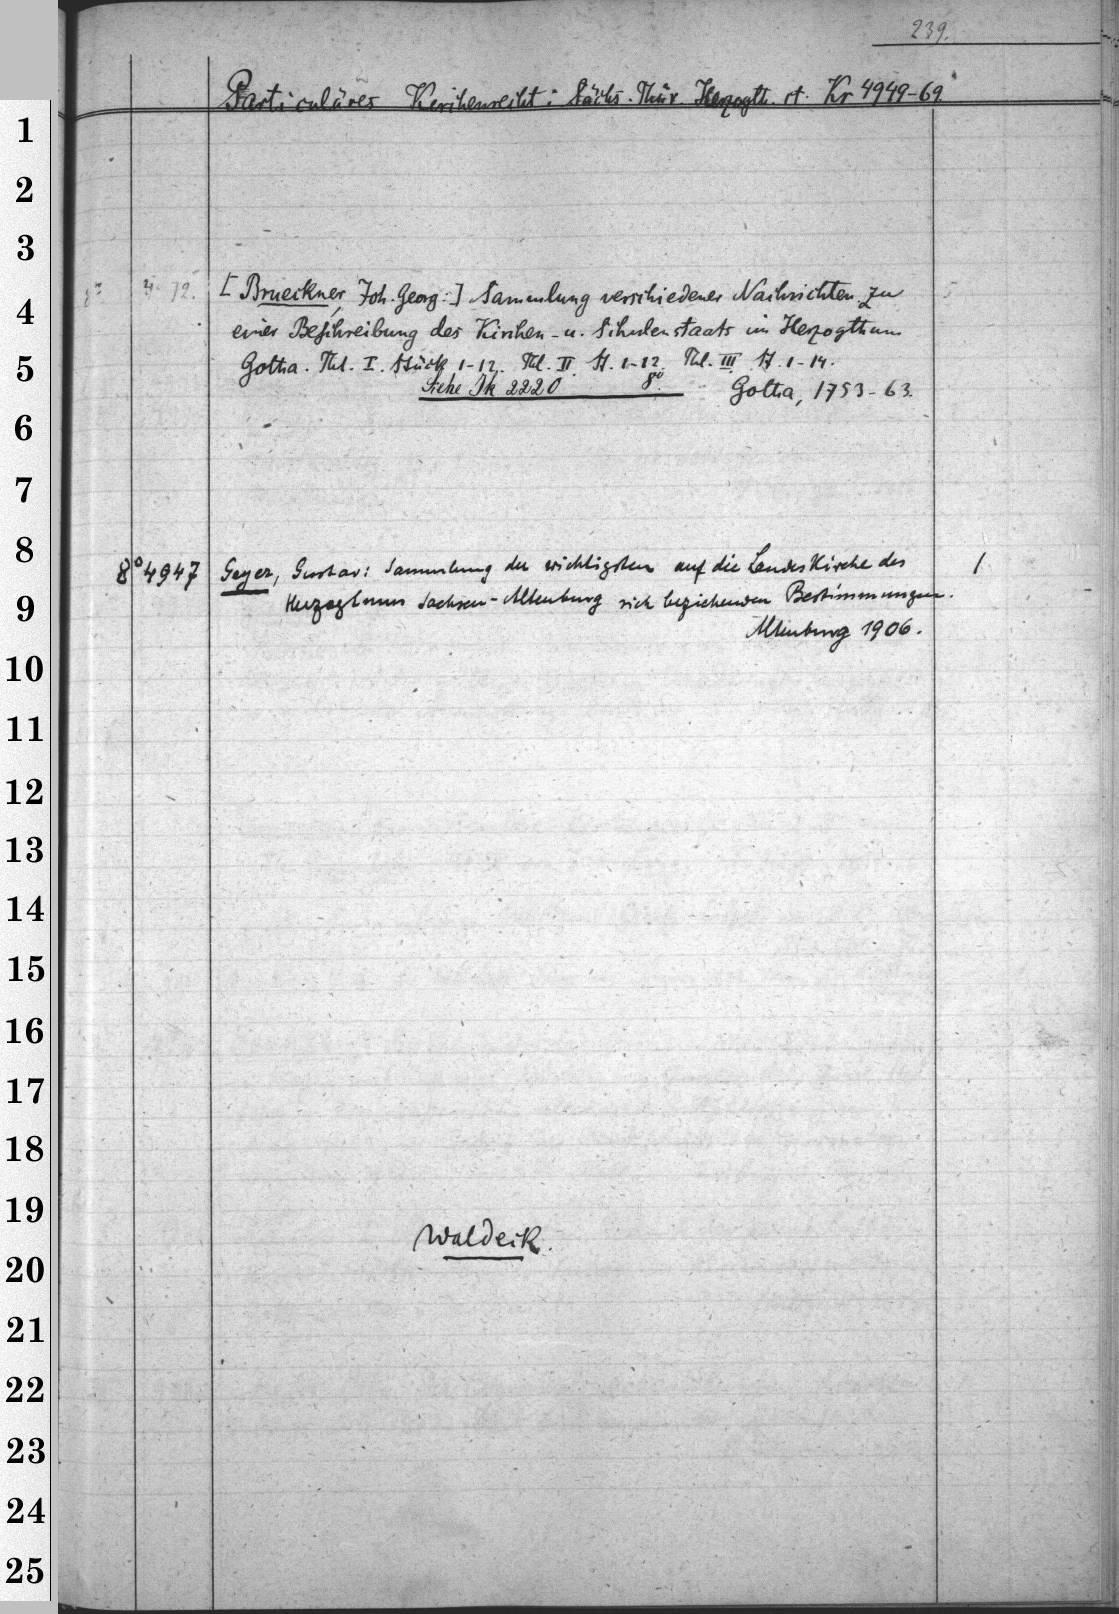 239.
Particuläres Kirchenrecht: Sächs. Thür. Herzogth. st. Kr 4949-69.
1
2
3
[Brueckner, Joh. Georg:] Sammlung verschiedener Nachrichten zu
4
einer Beschreibung des Kirchen- u. Schulenstaats im Herzogthum
5
Gotha. Thl. I. Stück 1-12. Thl. II St. 1-12. Thl. III St. 1-14.
Siehe Jk 2220 8° Gotha, 1753-63.
6
7
8
8° 4947 Geyer, Gustav: Sammlung der wichtigsten auf die Landeskirche des 1
9
Herzogtums Sachsen-Altenburg sich beziehenden Bestimmungen.
Altenburg 1906.
10
11
12
13
14
15
16
17
18
19
Waldeck.
20
21
22
23
24
25